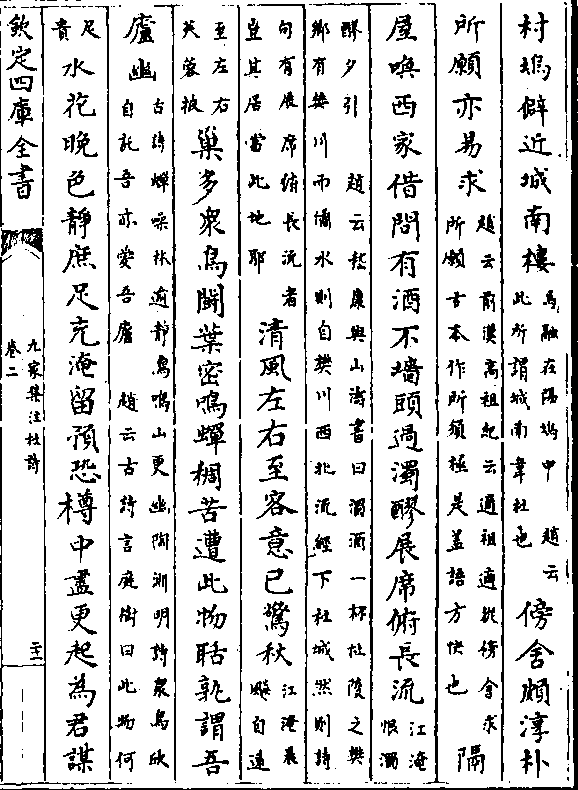 村塢僻近城南樓馬融在郿塢中 趙云此所謂城南韋杜也傍舍頗淳朴
所願亦易求趙云前漢高祖紀云適祖適從傍舍求所願古本作所須極是蓋語方快也隔
屋喚西家借問有酒不墻頭過濁醪展席俯長流江淹恨濁
醪夕引 趙云嵇康與山濤書曰濁酒一杯杜陵之樊鄉有樊川而潏水則自樊川西北流經下杜城然則詩
句有展席俯長流者豈其居當此地耶清風左右至客意已驚秋江淹晨飈自遠
至左右芙蓉披巢多衆鳥鬭葉密鳴蟬稠苦遭此物聒孰謂吾
廬幽古詩蟬噪林逾靜鳥鳴山更幽陶淵明詩衆鳥欣自託吾亦愛吾廬 趙云古詩言庭樹曰此物何
足貴水花晚色靜庶足充淹留預恐樽中盡更起為君謀
欽定四庫全書
九家集注杜詩
卷二
二十一